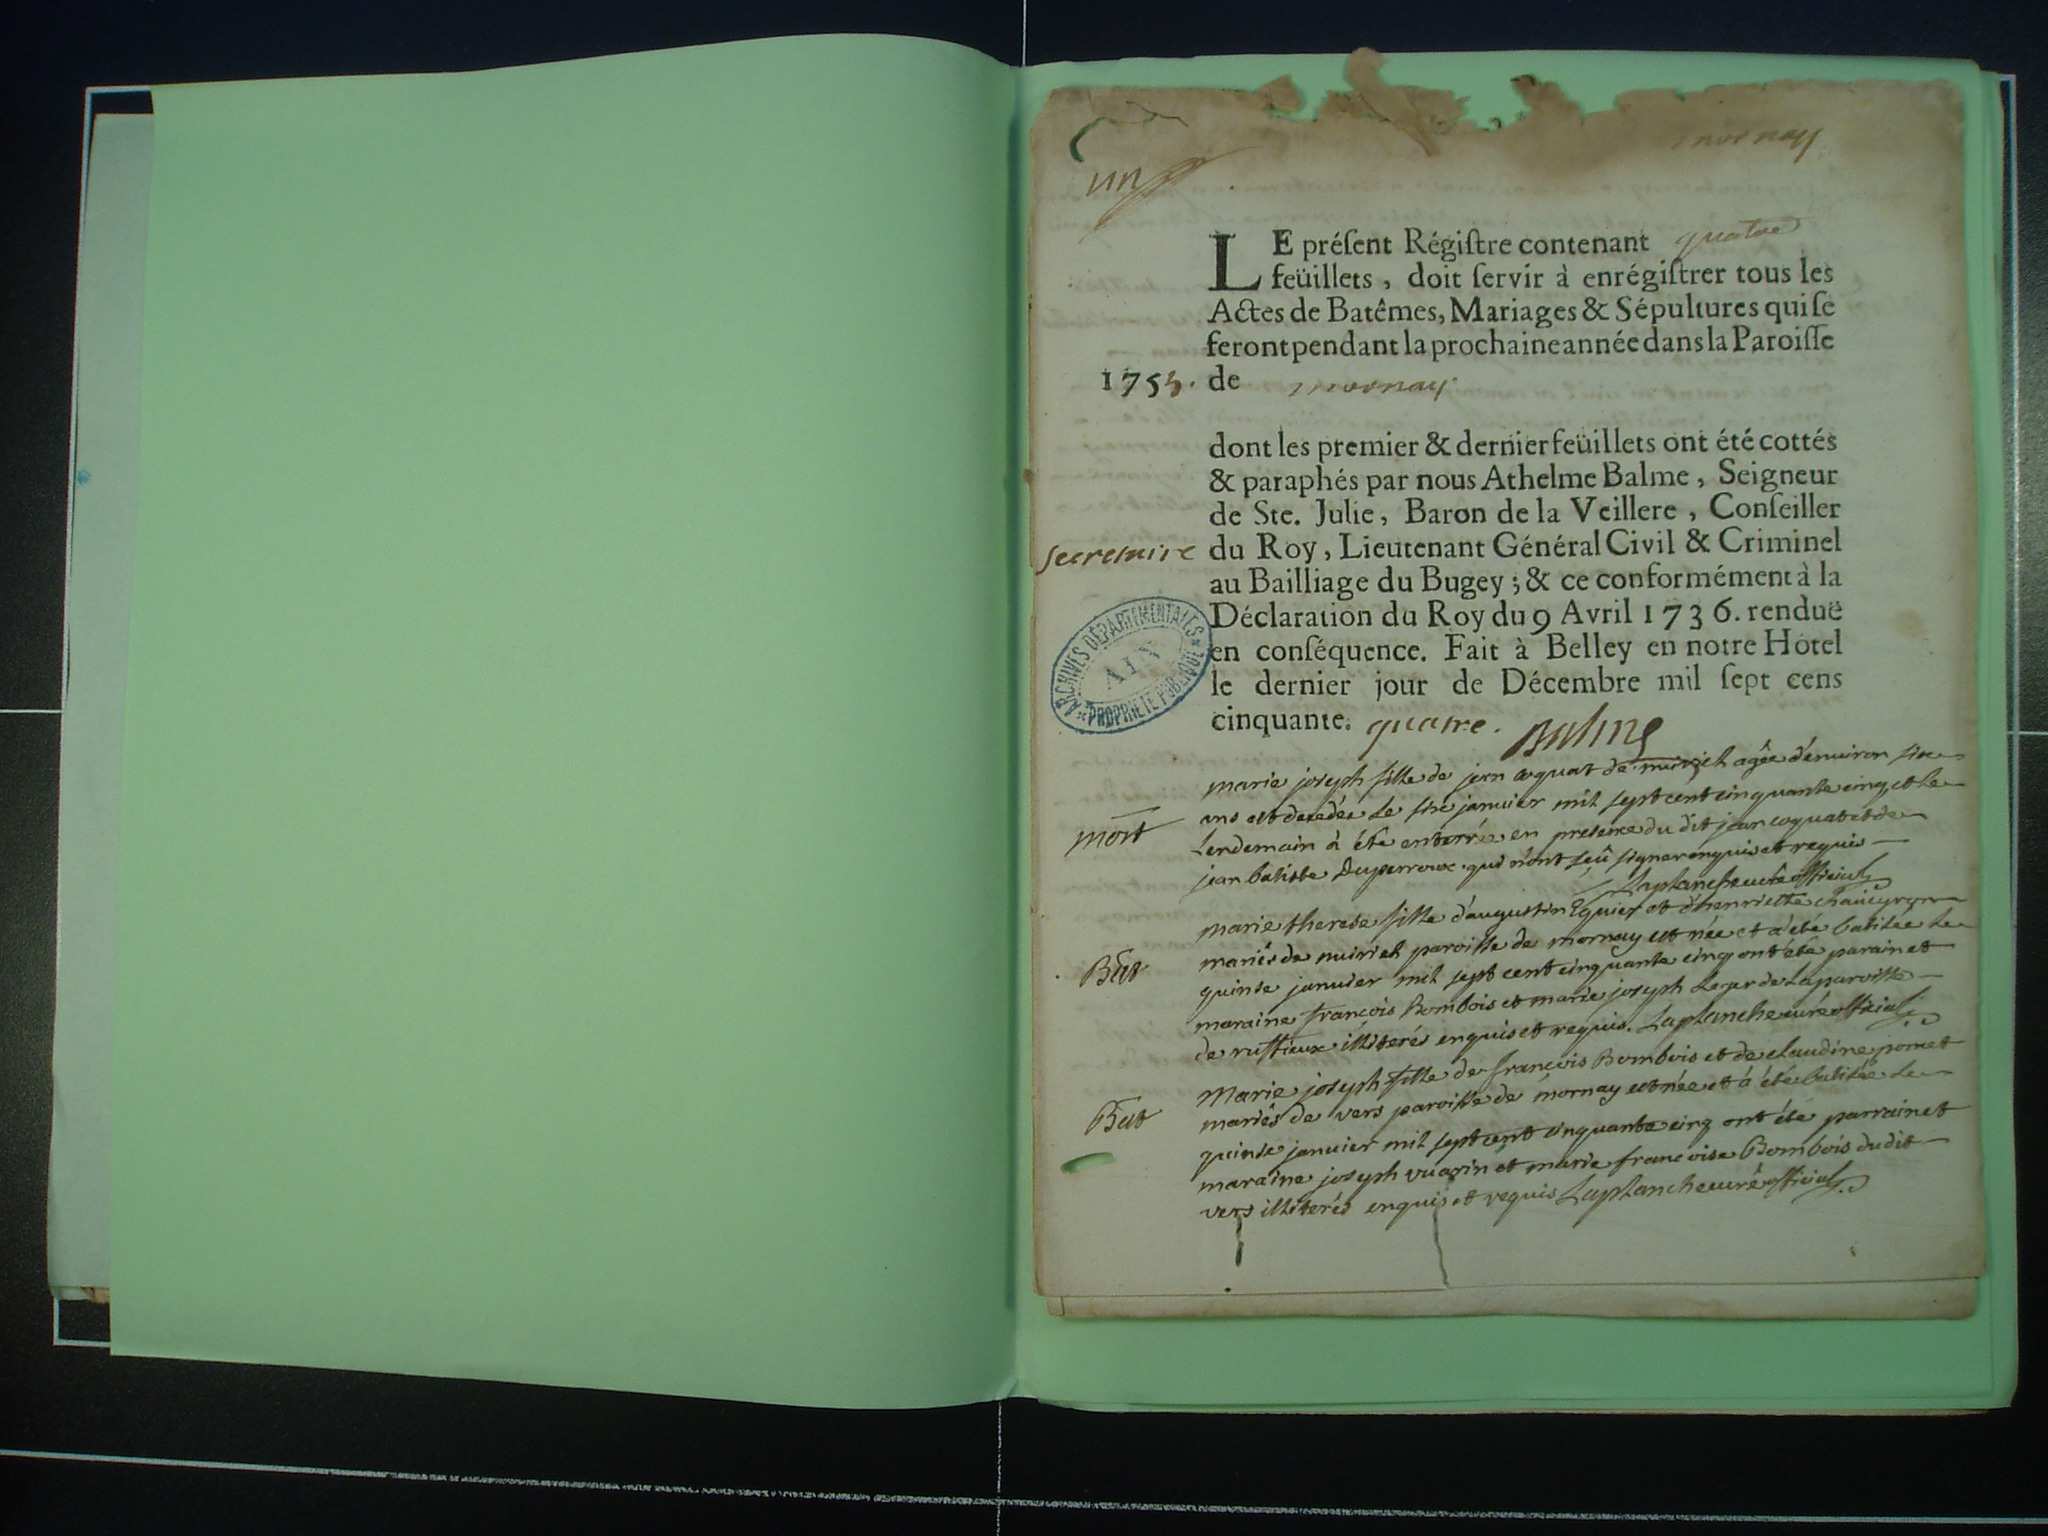 mornay
un
LE présent Régistre contenant quatre
feüillets, doit servir à enrégistrer tous les
Actes de Batêmes, Mariages & Sépultures qui se
feront pendant la prochaine année dans la Paroisse
1755. de mornay.
dont les premier & dernier feüillets ont été cottés
& paraphés par nous Athelme Balme, Seigneur
de Ste. Julie, Baron de la Veillere, Conseiller
secretaire du Roy, Lieutenant Général Civil & Criminel
au Bailliage du Bugey; & ce conformément à la
Déclaration du Roy du 9 Avril 1736. renduë
en conséquence. Fait à Belley en notre Hôtel
le dernier jour de Décembre mil sept cens
cinquante. quatre. Balme
ARCHIVES DÉPARTEMENTALES
AIN
PROPRIÉTÉ PUBLIQUE
marie joseph fille de jean coquat de agêe d'environ six
mort
ans est decedée le six janvier mil sept cent cinquante cinq et le
lendemain à été enterrée en presence du dit jean coquat et de
jean batiste Duperroux qui n'ont sçû signer enquis et requis
Laplanche curé official
marie therese fille d'augustin et d'henriette
Bat
mariés de nuiriet paroisse de mornay est née et a été batisée le
quinse janvier mil sept cent cinquante cinq ont été parain et
maraine françois Bombois et marie joseph de la paroisse
de ruffieux illiterés enquis et requis. Laplanche curé official
Marie joseph fille de françois Bombois et de claudine pomet
Bat
mariés de vers paroisse de mornay est née et à été batisée le
quinse janvier mil sept cent cinquante cinq ont été parrain et
maraine joseph vuarin et marie françoise Bombois dudit
vers illiterés enquis et requis Laplanche curé official